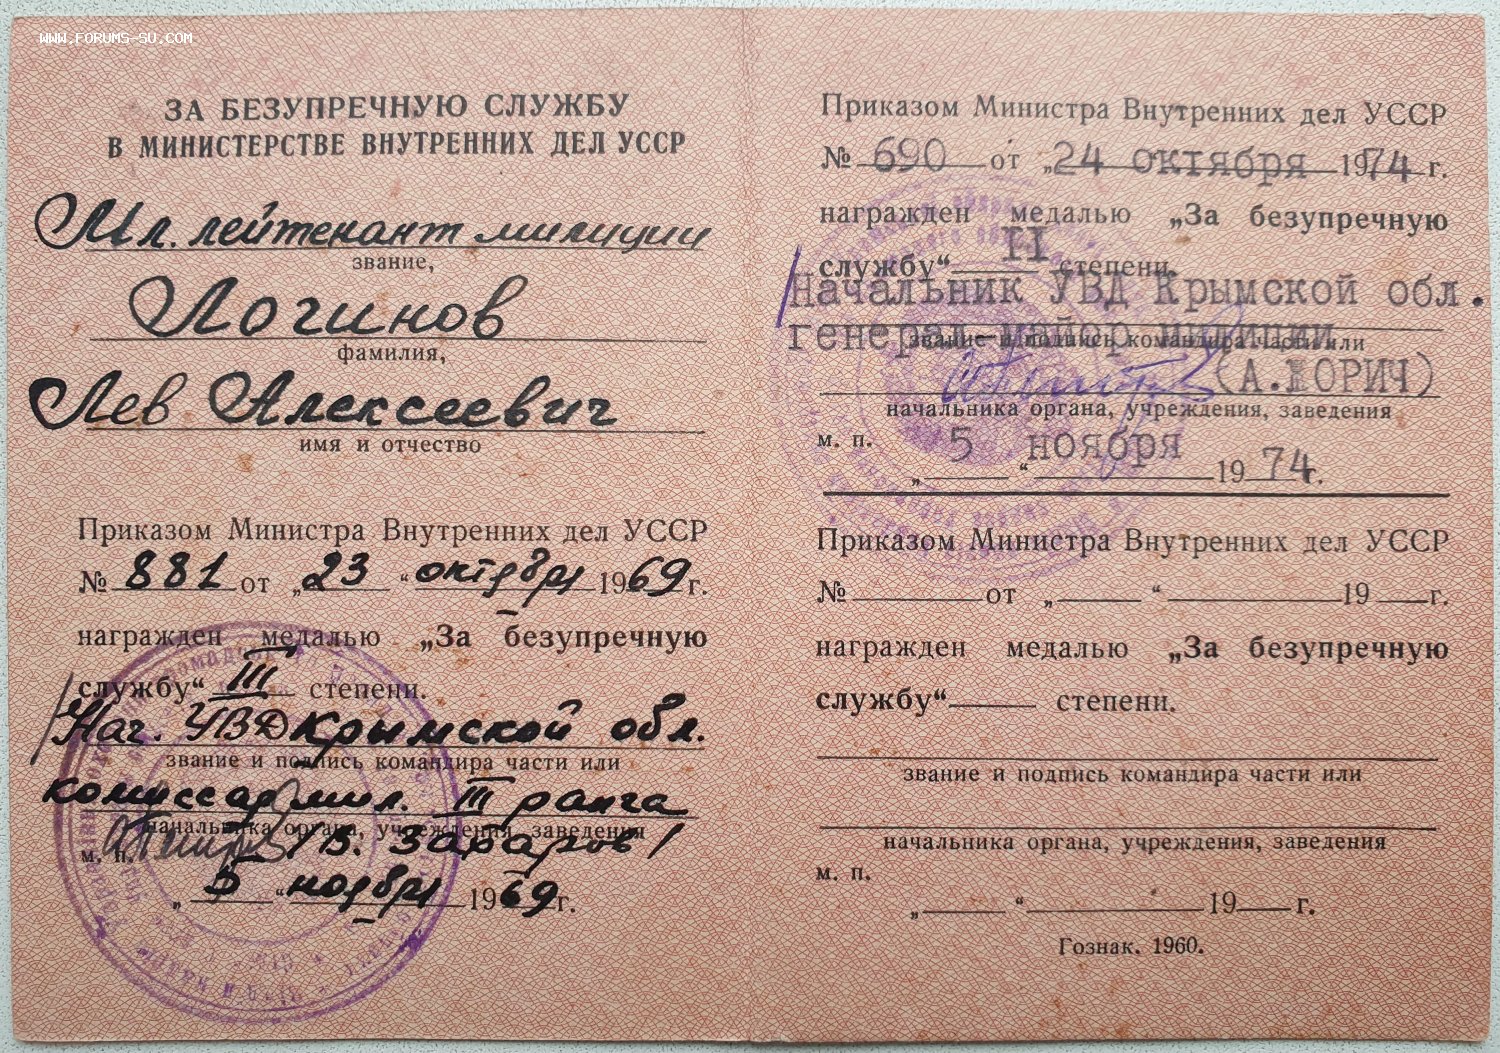 WWW.FORUMS-SU.COM
ЗА БЕЗУПРЕЧНУЮ СЛУЖБУ
В МИНИСТЕРСТВЕ ВНУТРЕННИХ ДЕЛ УССР
Мл. лейтенант милиции
звание,
Логинов
фамилия,
Лев Алексеевич
имя и отчество
Приказом Министра Внутренних дел УССР
№ 881 от „23“ октября 1969 г.
награжден медалью „За безупречную
службу“ III степени.
Нач. УВД Крымской обл.
звание и подпись командира части или
комиссар мил. III ранга
начальника органа, учреждения, заведения
м. п. /В. Захаров/
„5“ ноября 1969 г.
Приказом Министра Внутренних дел УССР
№ 690 от „24 октября 1974 г.
награжден медалью „За безупречную
службу“ II степени.
Начальник УВД Крымской обл.
генерал-майор милиции
звание и подпись командира части или
(А.ПОРИЧ)
начальника органа, учреждения, заведения
м. п.
„5“ ноября 1974 г.
Приказом Министра Внутренних дел УССР
№ от „ “ 19 г.
награжден медалью „За безупречную
службу“ степени.
звание и подпись командира части или
начальника органа, учреждения, заведения
м. п.
„ “ 19 г.
Гознак. 1960.